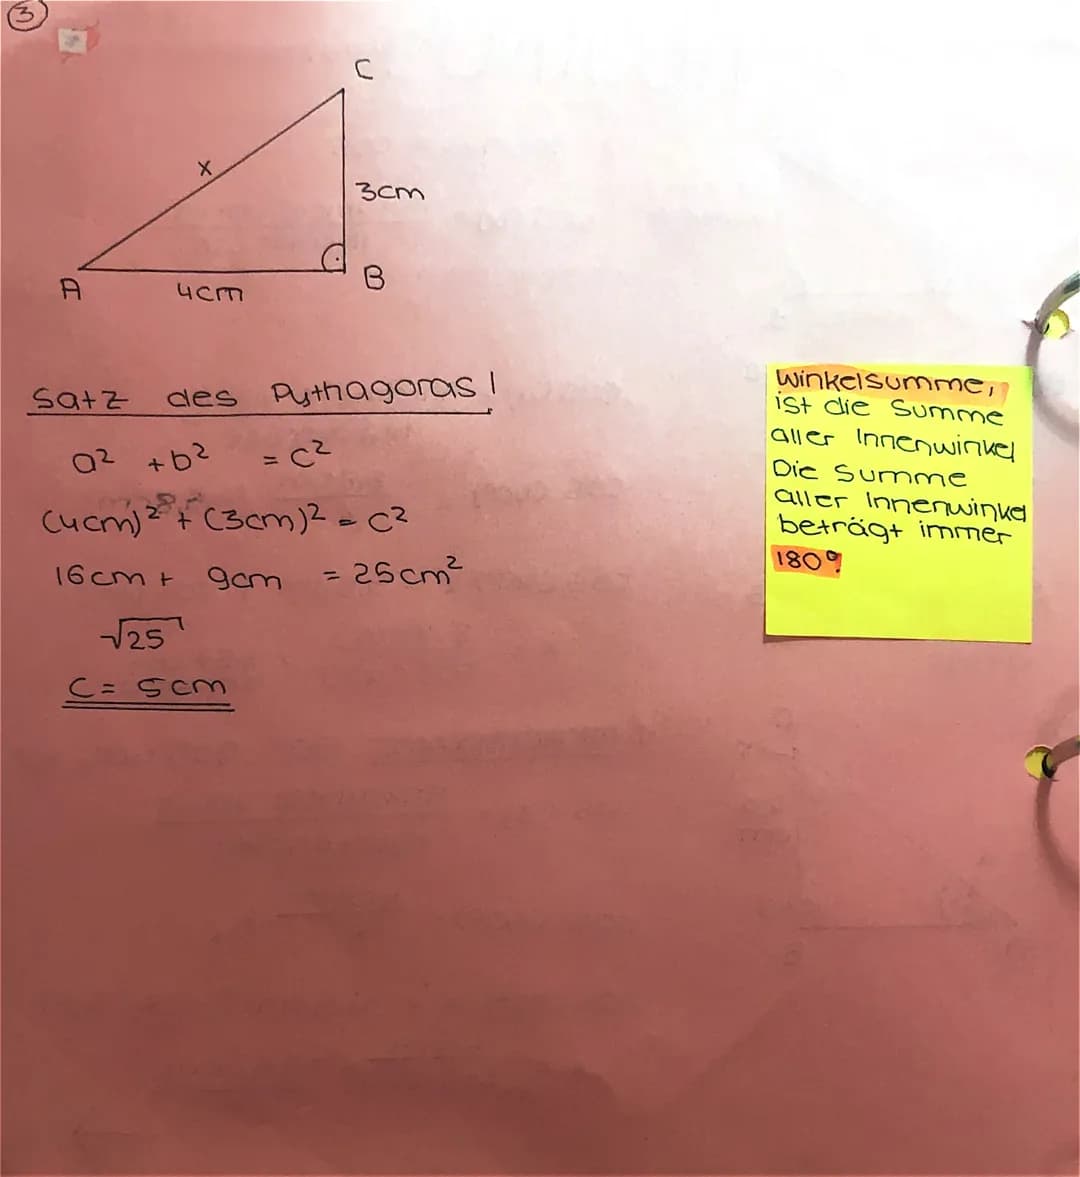 3
C
x
3cm
A
4cm
B
Satz des Pythagoras!
a² + b² = c²
(4cm)² + (3cm)² = c²
16cm + 9cm = 25cm²
√25
C = 5cm
Winkelsumme,
ist die Summe
aller Innenwinkel
Die Summe
aller Innenwinkel
beträgt immer
180°.